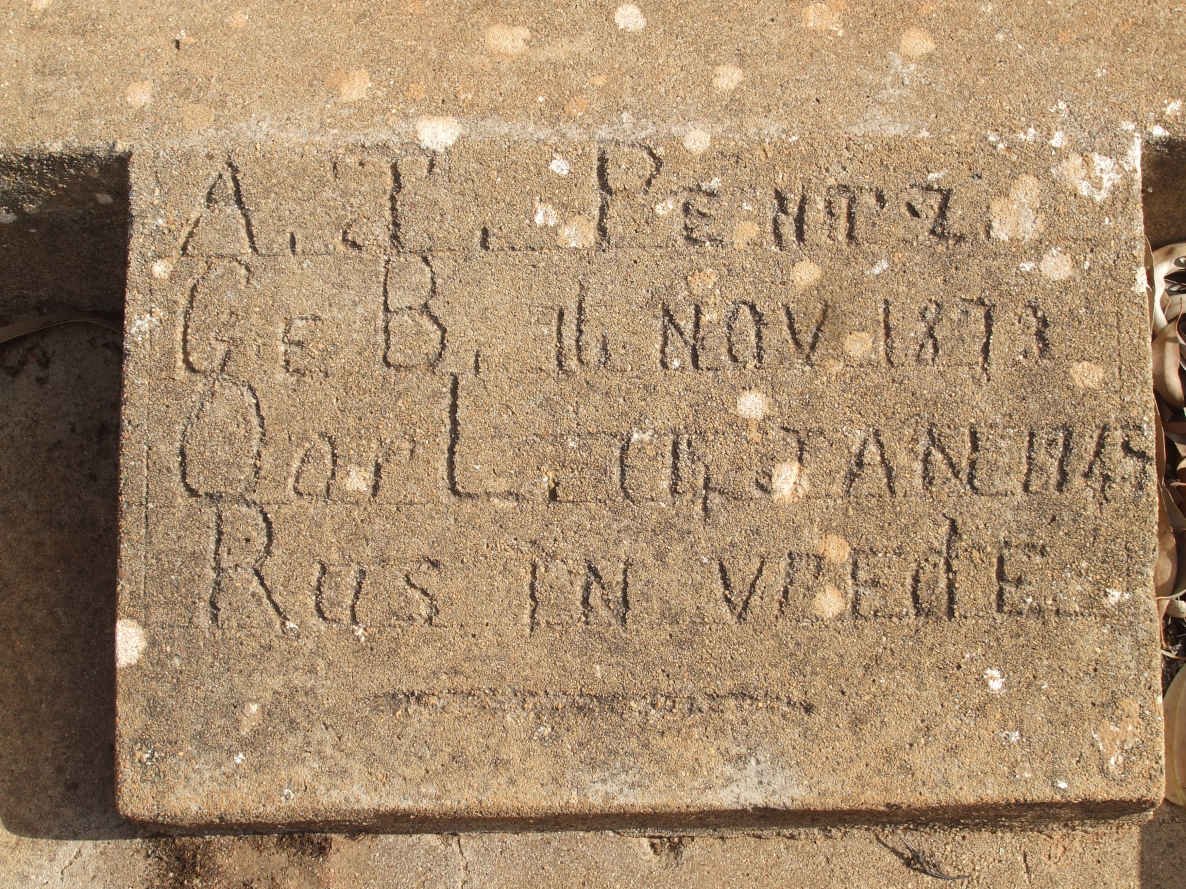 A. T. PENTZ
GEB. 16 NOV 1873
OorL. 19 JAN 1945
RUS IN VREdE